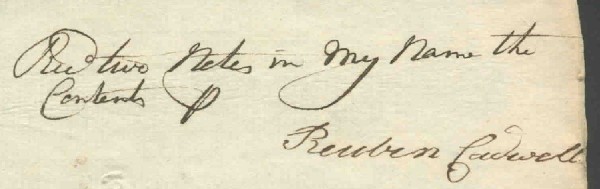 Recd two Notes in My Name the
Contents ⅌
Reuben Cadwell